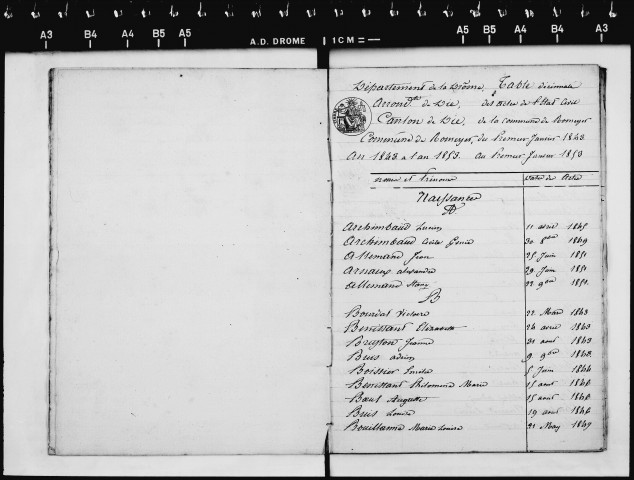 A3 B4 A4 B5 A5 A.D. DROME 1CM A5 B5 A4 B4 A3
Département de la Drôme, Table décennale
Arrondt de Die, des actes de l'État Civil
Canton de Die, de la commune de Romeyer
Commune de Romeyer, du Premier Janvier 1843
An 1843 a l'an 1853. au Premier Janvier 1853
noms et Prénoms Date des Actes
Naissances
A
Archimbaud Lucien 11 avril 1845
Archimbaud 30 8bre 1849
Allemand Jean 25 Juin 1851
Arnaux alexandre 29 Juin 1851
Allemand 22 9bre 1851
B
Bourdal Victoire 22 Mars 1843
Benistant Elizabeth 24 avril 1843
Breyton Jeanne 31 aout 1843
Bris adrien 9 9bre 1843
Boissier Emilie 5 Juin 1844
Benistant Philomène Marie 15 aout 1846
Auguste 15 aout 1846
Bris Louise 19 aout 1846
Bouillanne Marie Louise 21 May 1849